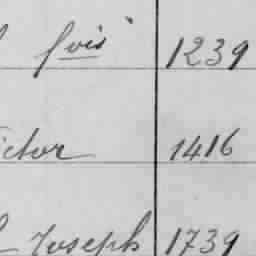 fois 1239
ictor 1416
Joseph 1739